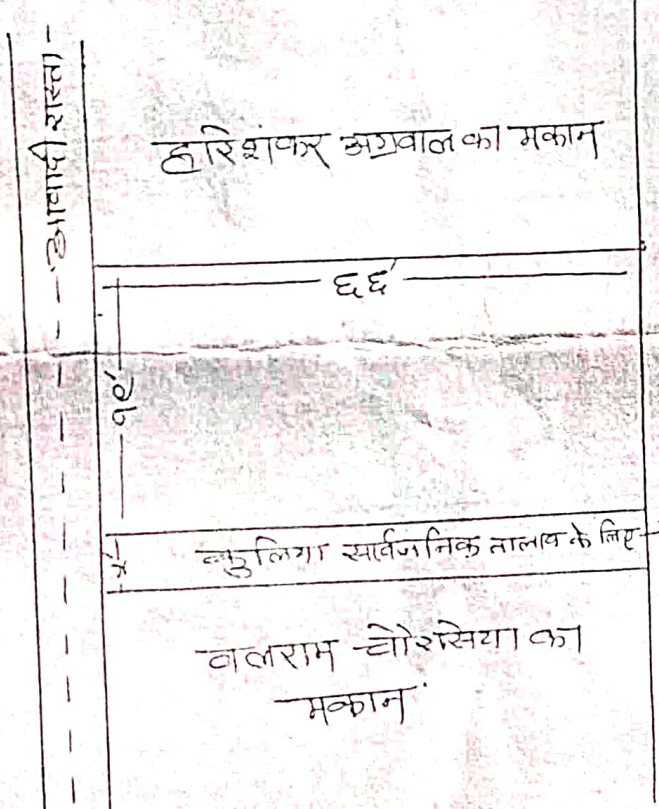 आवादी रास्ता
हरिशंकर अग्रवाल का मकान
६६'
१९'
कुलिया सार्वजनिक तालाव के लिए
वलराम चौरसिया का
मकान